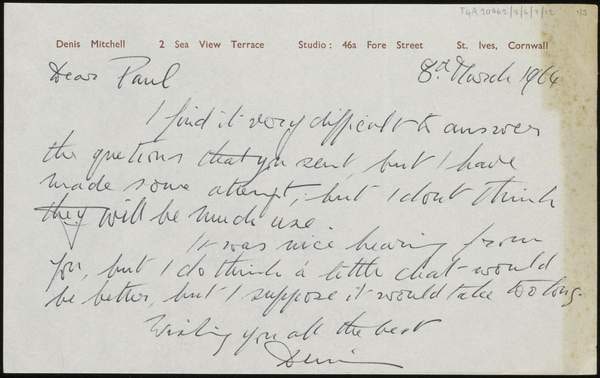 Denis Mitchell 2 Sea View Terrace Studio: 46a Fore Street St. Ives, Cornwall
Dear Paul 8th March 1964
I find it very difficult to answer
the quetions that you sent, but I have
made some atempt, but I dont think
they will be much use.
It was nice hearing from
you, but I do think a little chat would
be better, but I suppose it would take too long.
Wishing you all the best
Denis